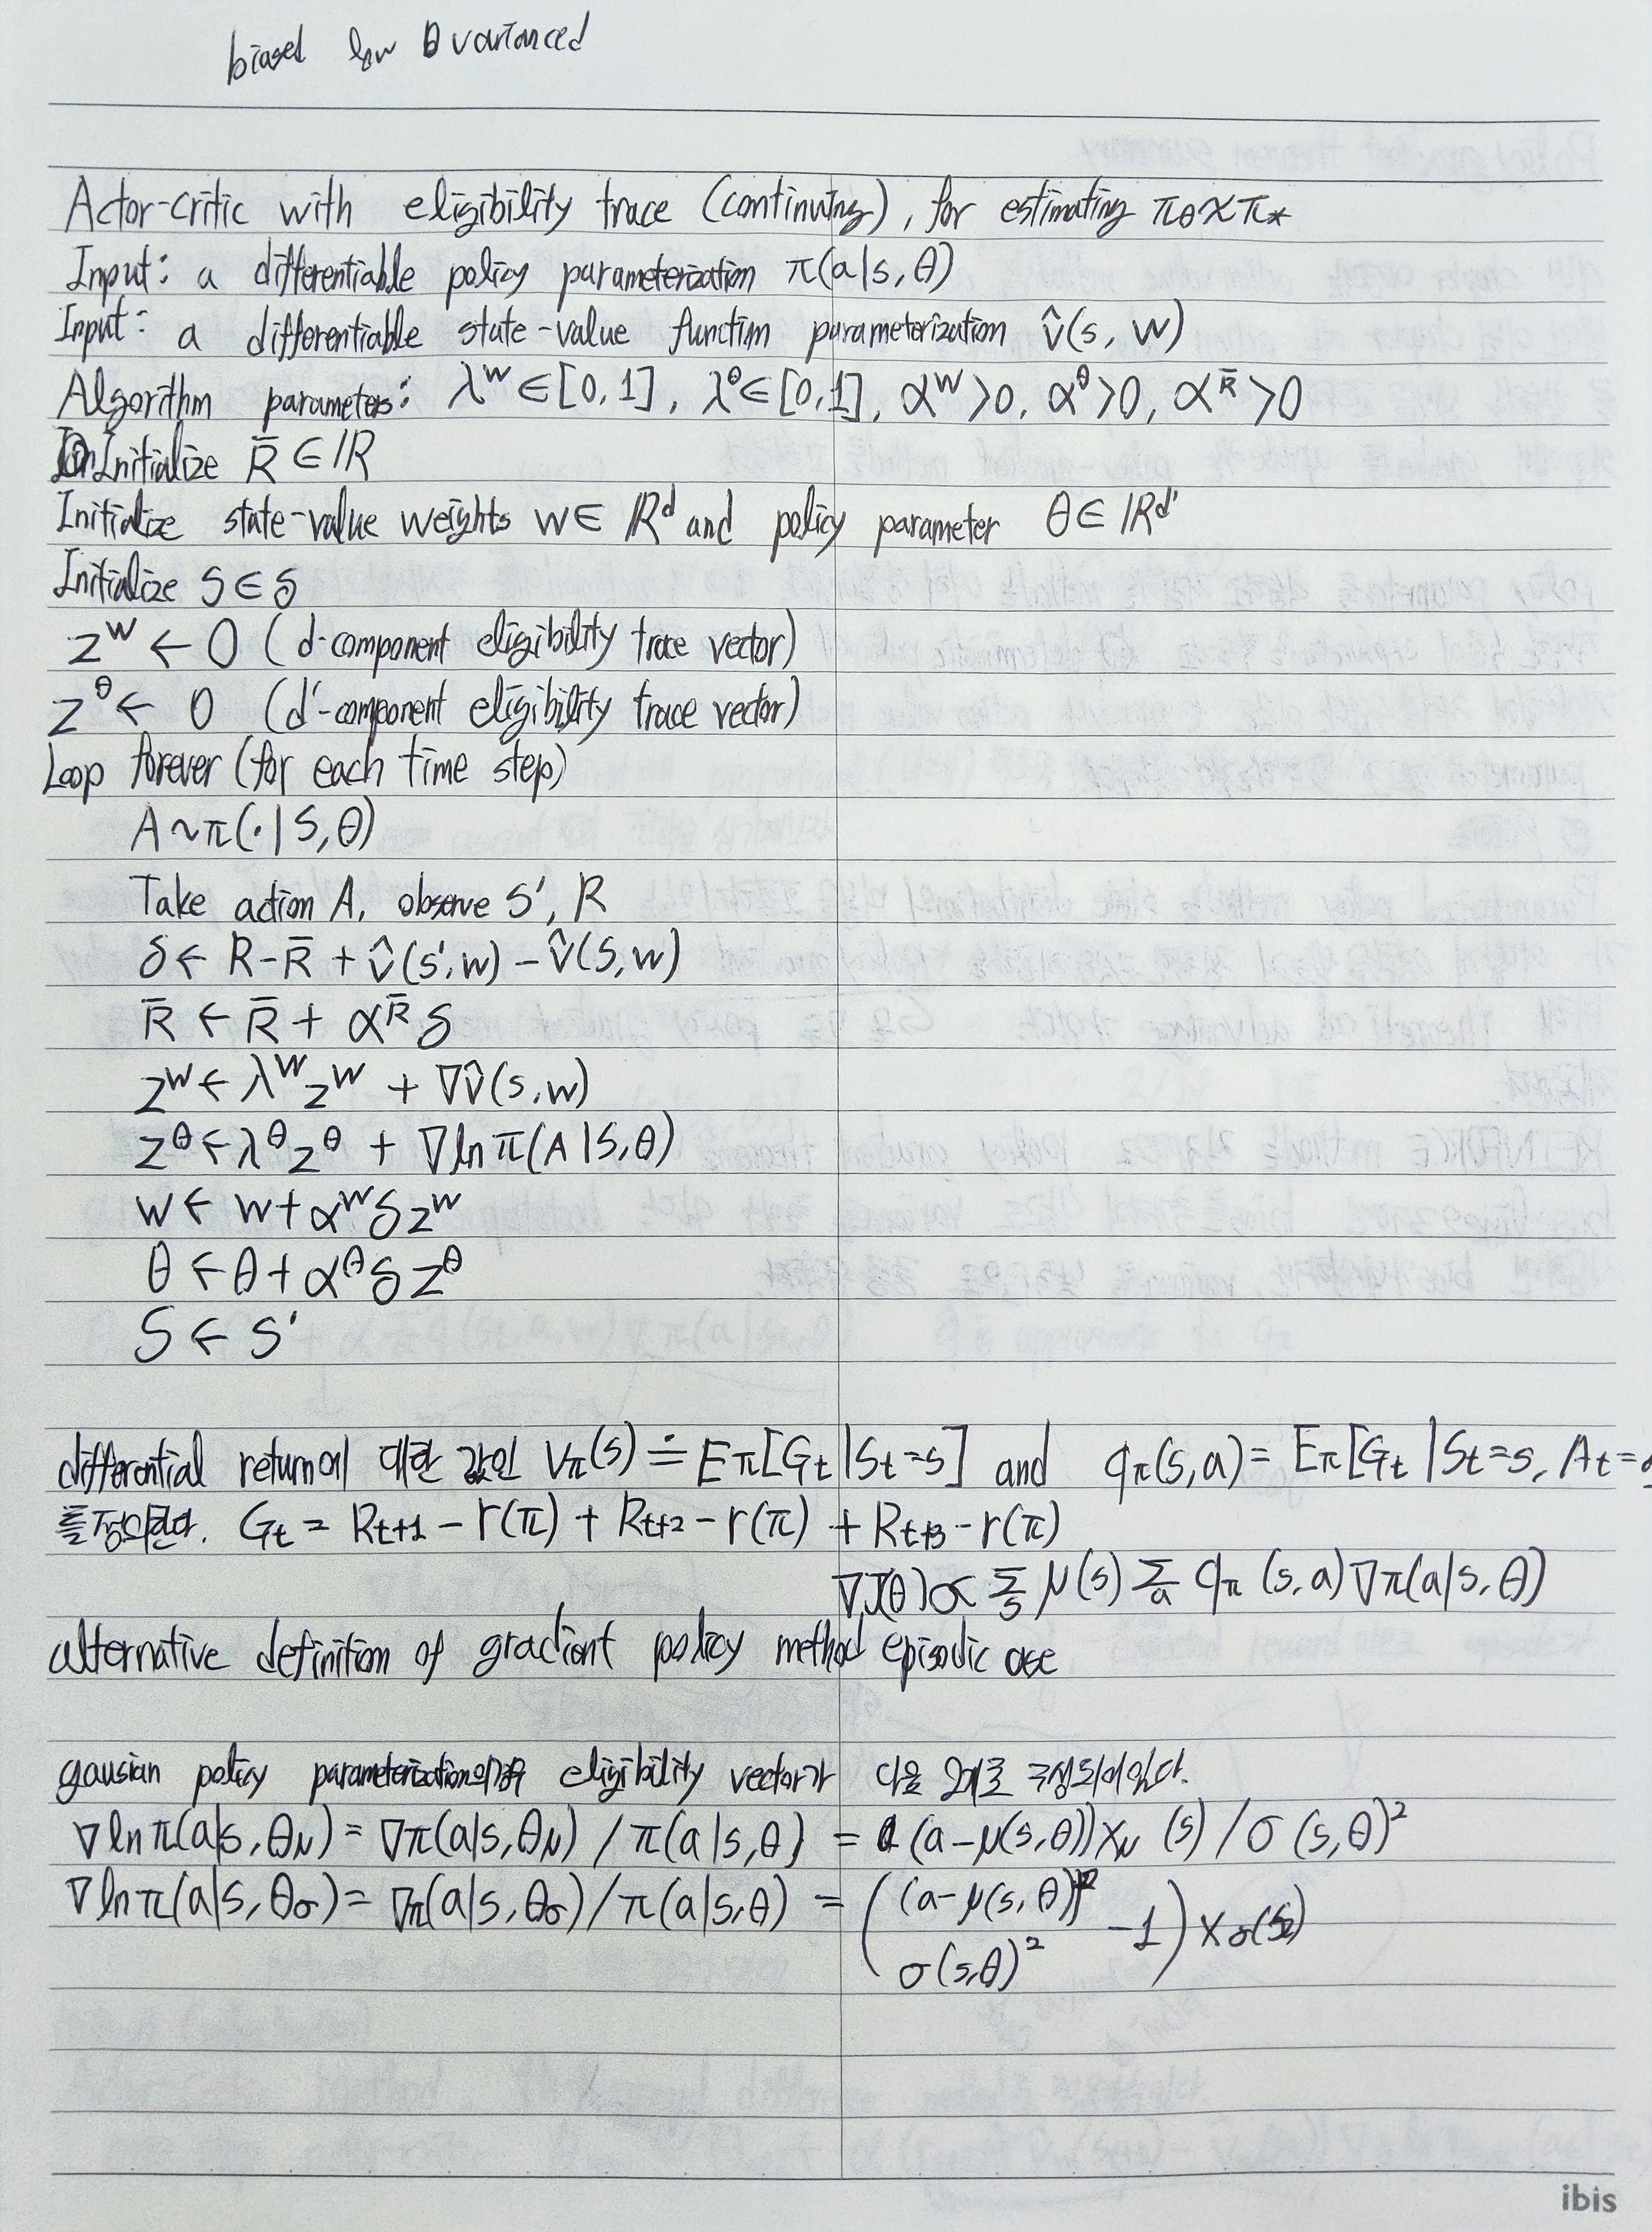 biased low θ varianced
Actor-critic with eligibility trace (continuing), for estimating πθ≈π*
Input: a differentiable policy parameterization π(a|s,θ)
Input: a differentiable state-value function parameterization v̂(s,w)
Algorithm parameters: λ^w ∈[0,1], λ^θ∈[0,1], α^w>0, α^θ>0, α^R̄>0
Initialize R̄ ∈ ℝ
Initialize state-value weights w∈ ℝ^d and policy parameter θ∈ ℝ^d'
Initialize S ∈ S
z^w ← 0 (d-component eligibility trace vector)
z^θ ← 0 (d'-component eligibility trace vector)
Loop forever (for each time step)
A∼π(·|S,θ)
Take action A, observe S', R
δ← R-R̄ + v̂(s',w) - v̂(S,w)
R̄ ← R̄ + α^R̄ δ
z^w ← λ^w z^w + ∇v̂(s,w)
z^θ ← λ^θ z^θ + ∇ln π(A|S,θ)
w ← w+α^w δ z^w
θ ← θ+ α^θ δ z^θ
S ← S'
differential return에 대한 값인 Vπ(s) ≐ Eπ[Gt|St=s] and qπ(s,a)= Eπ[Gt|St=s, At=a
를 정의한다. Gt = Rt+1 - r(π) + Rt+2 - r(π) + Rt+3 - r(π)
∇J(θ)∝ Σs μ(s) Σa qπ(s,a)∇π(a|s,θ)
alternative definition of gradient policy method episodic case
gausian policy parameterization의 경우 eligibility vector가 다음 2개로 구성되어있다.
∇ln π(a|s,θμ)= ∇π(a|s,θμ)/π(a|s,θ) = (a-μ(s,θ))xμ(s)/σ(s,θ)²
∇ln π(a|s,θσ)= ∇π(a|s,θσ)/π(a|s,θ) = ((a-μ(s,θ))²/σ(s,θ)² -1) xσ(s)
ibis